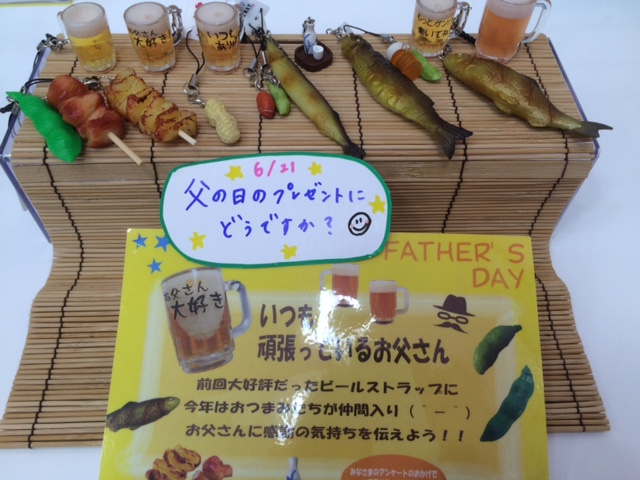 お父さん
大好き
いつも
6/21
父の日のプレゼントに
どうですか?
FATHER'S
DAY
お父さん
大好き
いつも
頑張っているお父さん
前回大好評だったビールストラップに
今年はおつまみたちが仲間入り(￣ー￣)
お父さんに感謝の気持ちを伝えよう!!
みなさまのアンケートのおかげで